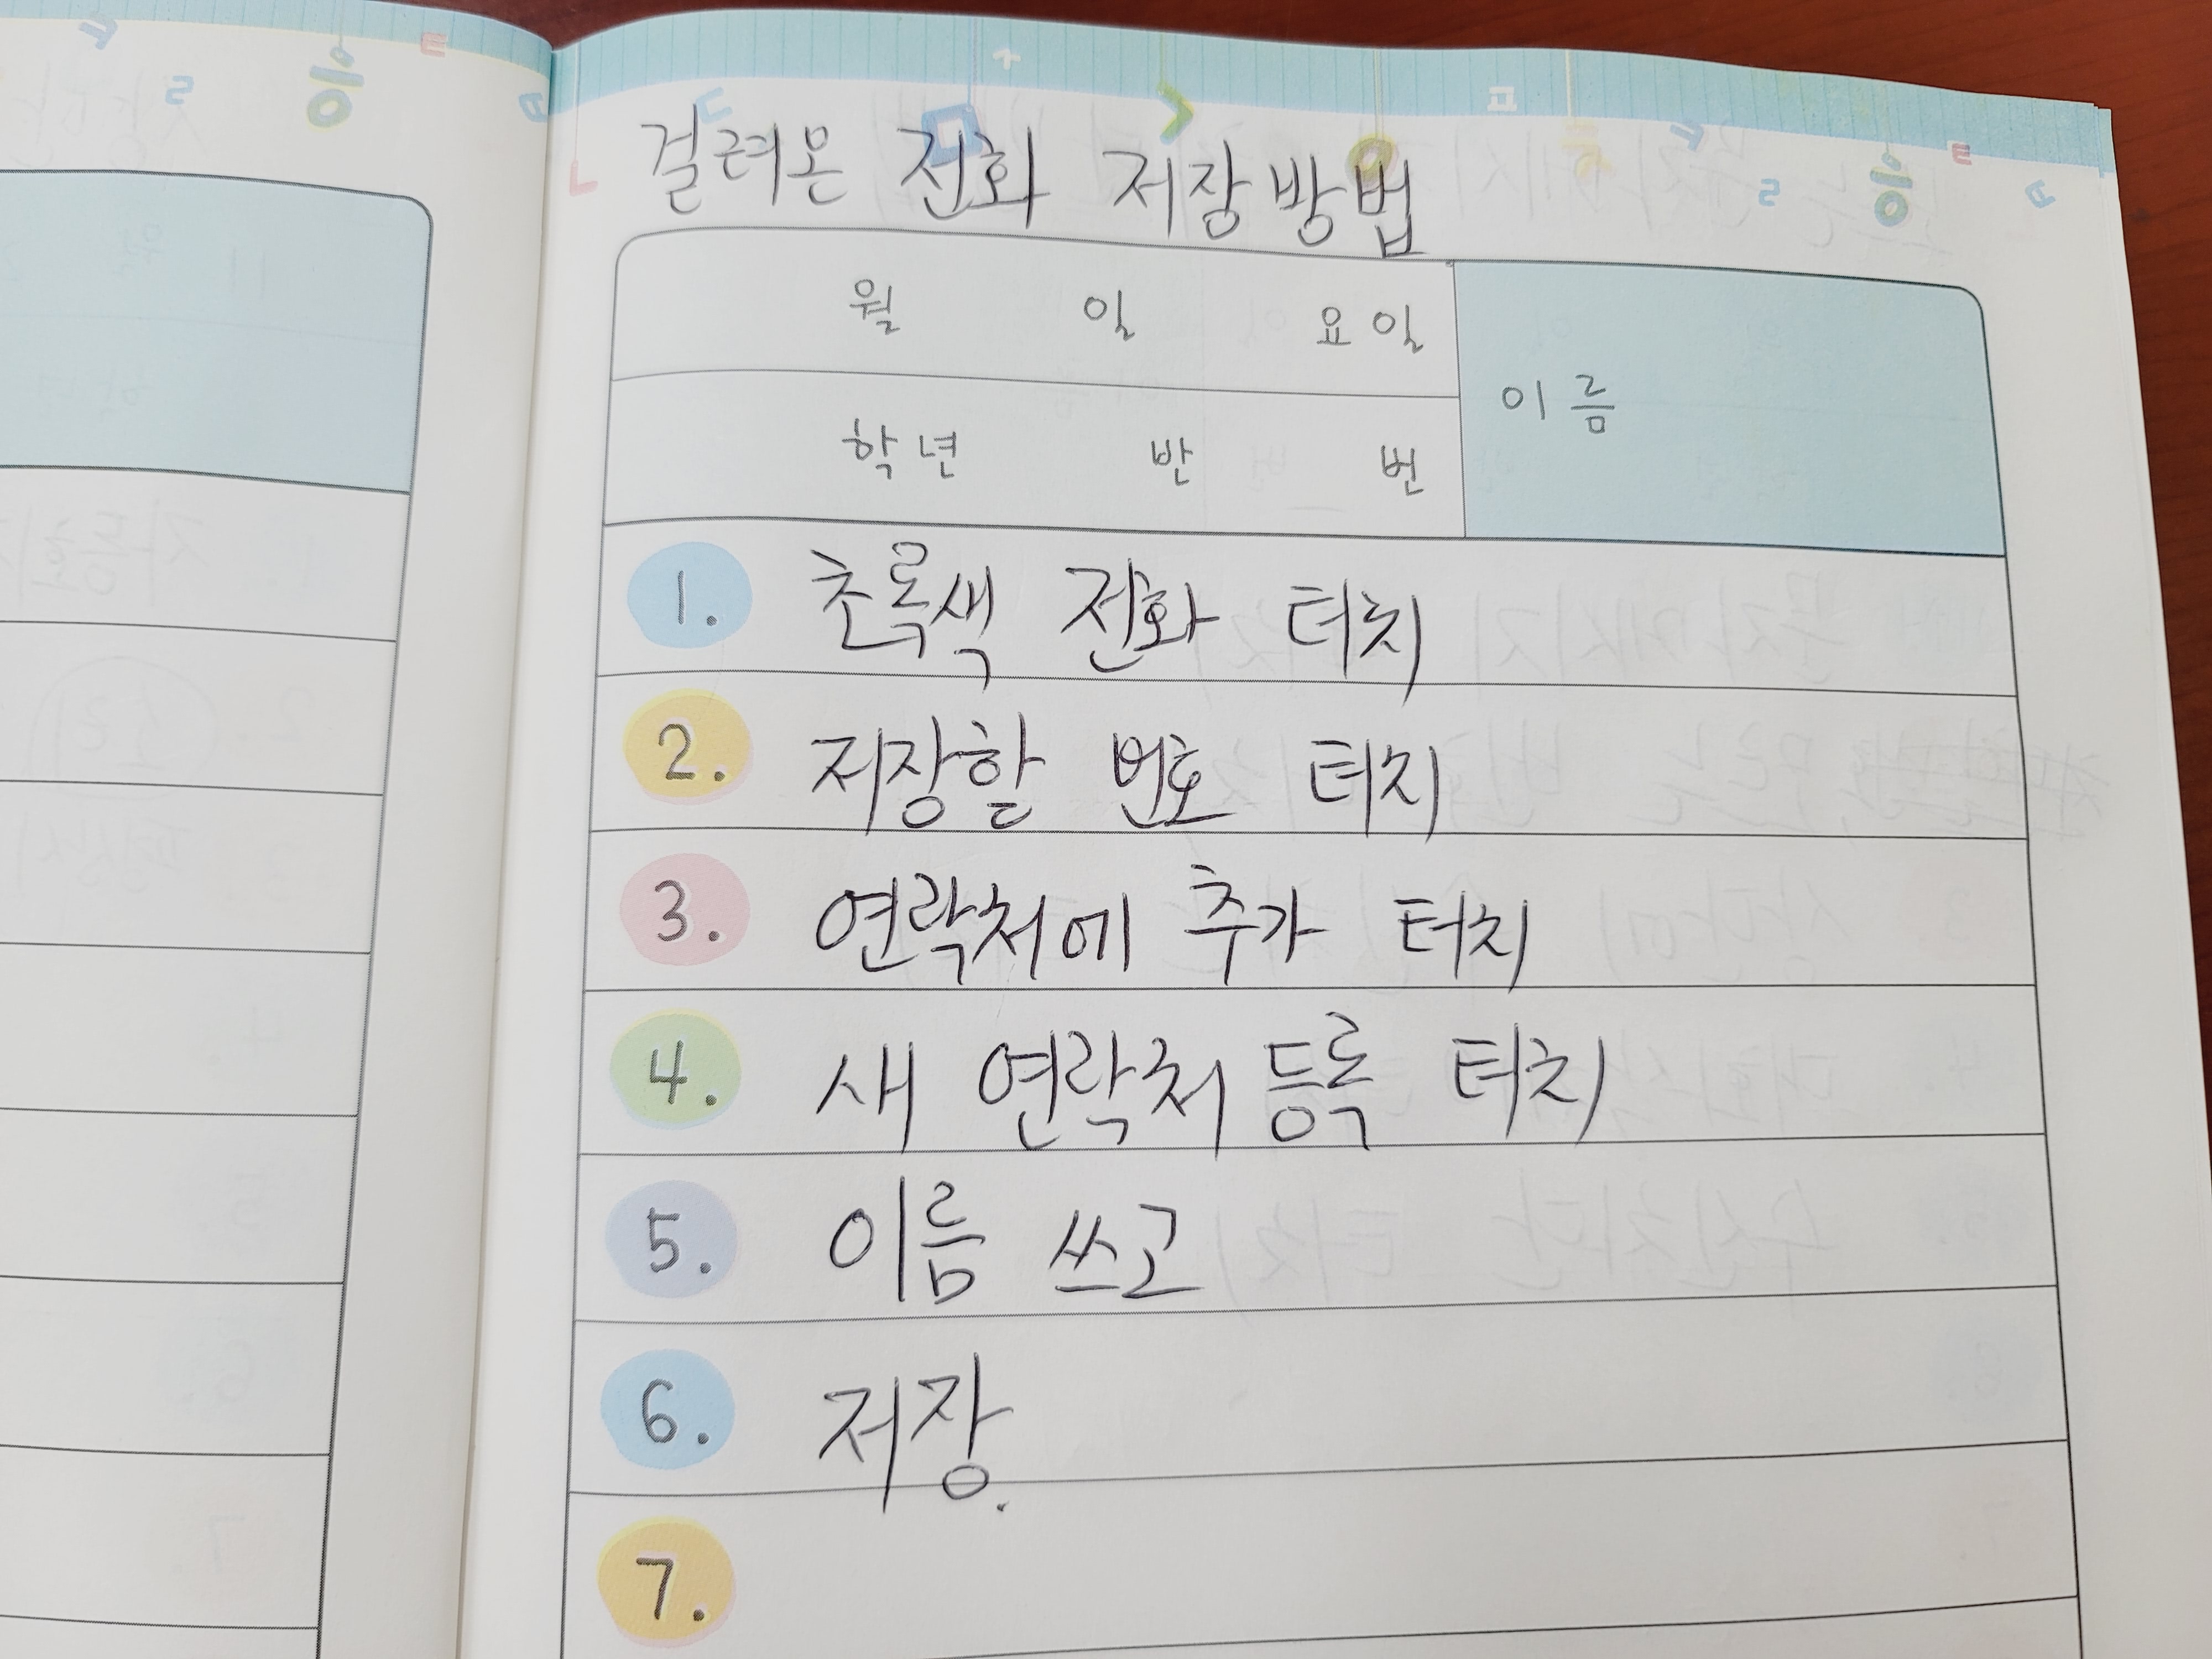 걸려온 전화 저장방법
월 일 요일
이름
학년 반 번
1. 초록색 전화 터치
2. 저장할 번호 터치
3. 연락처에 추가 터치
4. 새 연락처 등록 터치
5. 이름 쓰고
6. 저장.
7.